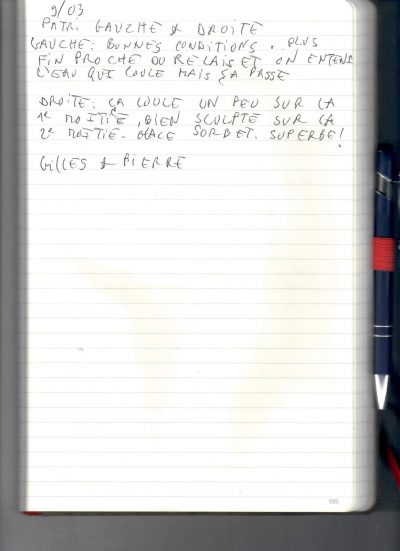 9/03
PATRI GAUCHE & DROITE
GAUCHE: BONNES CONDITIONS. PLUS
FIN PROCHE DU RELAIS ET ON ENTEND
L'EAU QUI COULE MAIS ÇA PASSE
DROITE: ÇA COULE UN PEU SUR LA
1e MOITIÉ, BIEN SCULPTÉ SUR LA
2e MOITIÉ. GLACE SORBET. SUPERBE!
GILLES & PIERRE